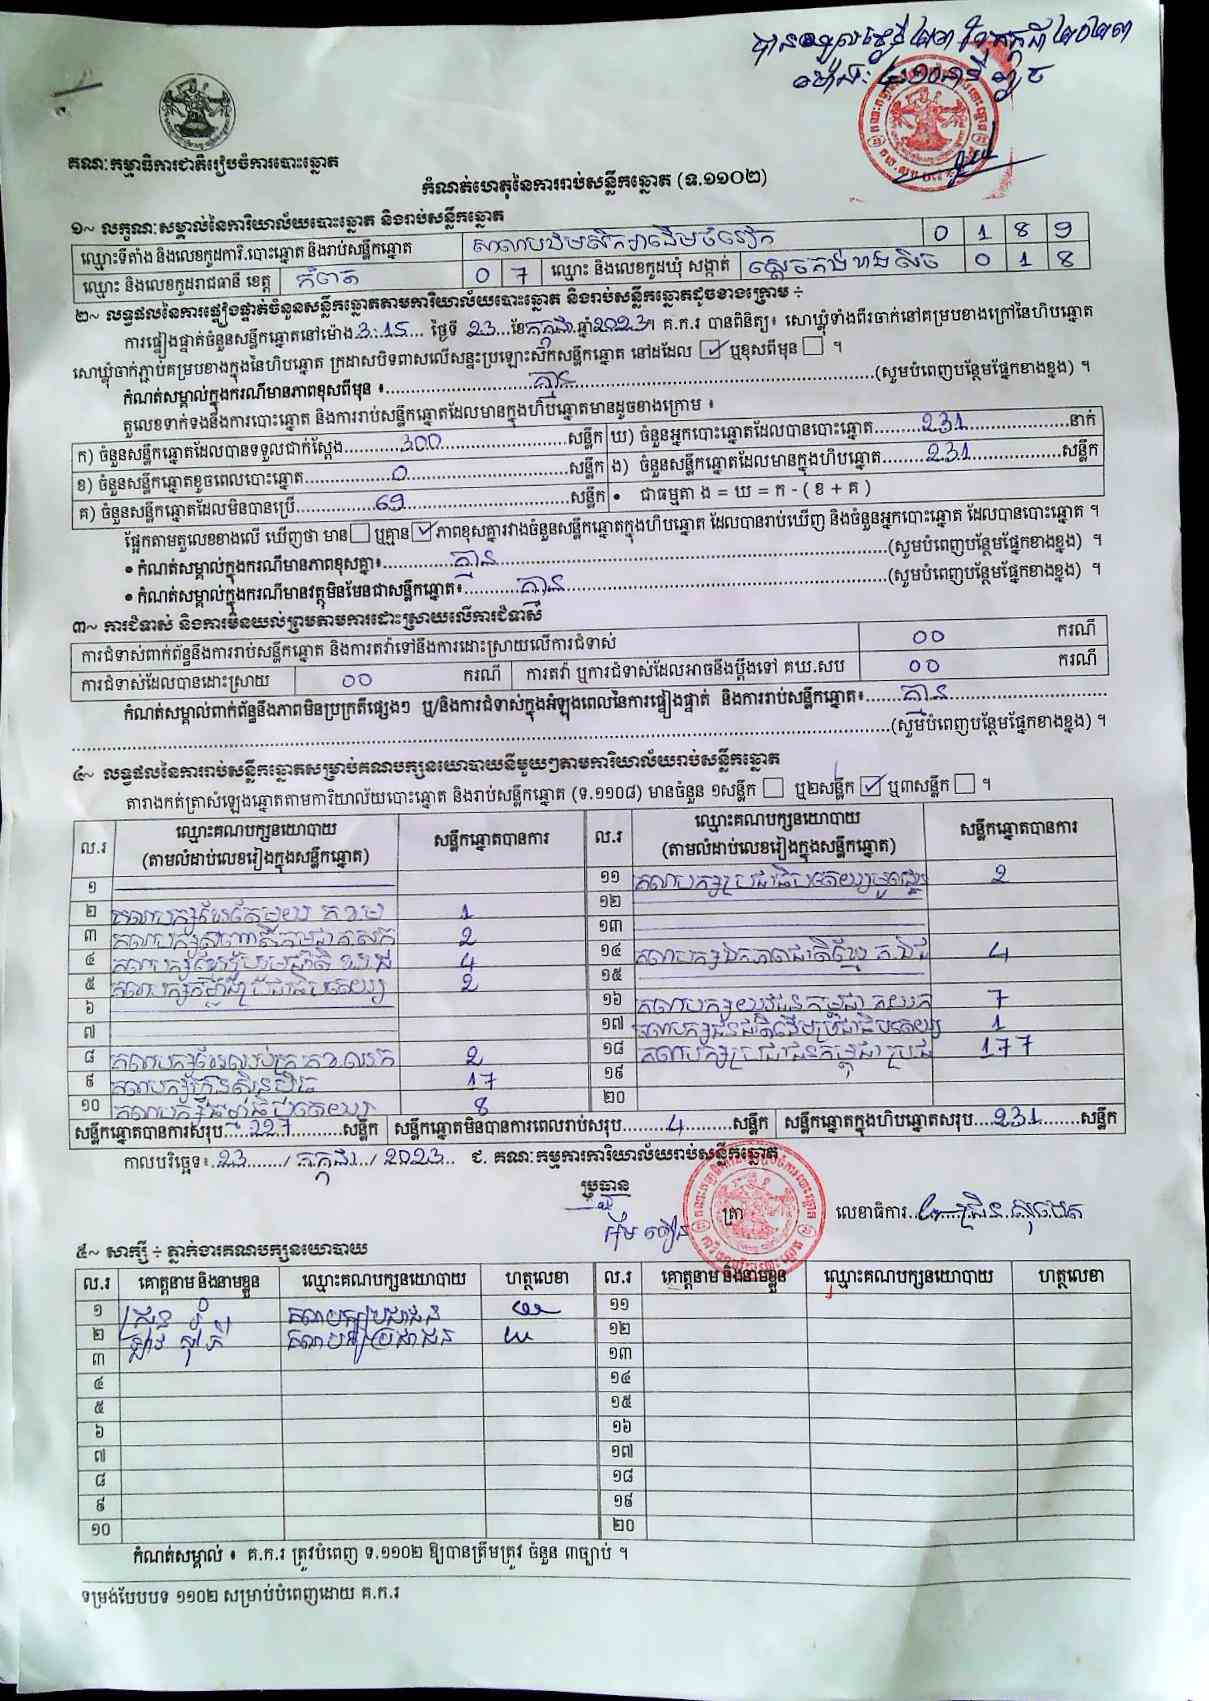 គណៈកម្មាធិការជាតិរៀបចំការបោះឆ្នោត
កំណត់ហេតុនៃការរាប់សន្លឹកឆ្នោត (ទ.១១០២)
១~ លក្ខណៈសម្គាល់នៃការិយាល័យបោះឆ្នោត និងរាប់សន្លឹកឆ្នោត
ឈ្មោះទីតាំង និងលេខកូដការិ.បោះឆ្នោត និងរាប់សន្លឹកឆ្នោត 0 1 8 9
ឈ្មោះ និងលេខកូដរាជធានី ខេត្ត កំពត 0 7 ឈ្មោះ និងលេខកូដឃុំ សង្កាត់ ស្តេចគង់ខាងលិច 0 1 8
២~ លទ្ធផលនៃការផ្ទៀងផ្ទាត់ចំនួនសន្លឹកឆ្នោតតាមការិយាល័យបោះឆ្នោត និងរាប់សន្លឹកឆ្នោតដូចខាងក្រោម ÷
ការផ្ទៀងផ្ទាត់ចំនួនសន្លឹកឆ្នោតនៅម៉ោង 3:15 ថ្ងៃទី 23 ខែ កក្កដា ឆ្នាំ 2023។ គ.ក.រ បានពិនិត្យ៖ សោឃ្លុំទាំងពីរចាក់នៅគម្របខាងក្រៅនៃហិបឆ្នោត
សោឃ្លុំចាក់ភ្ជាប់គម្របខាងក្នុងនៃហិបឆ្នោត ក្រដាសបិទពាសលើសន្ទះប្រឡោះសឹកសន្លឹកឆ្នោត នៅដដែល ☑ ឬខុសពីមុន ☐ ។
កំណត់សម្គាល់ក្នុងករណីមានភាពខុសពីមុន ៖ គ្មាន (សូមបំពេញបន្ថែមផ្នែកខាងខ្នង) ។
តួលេខទាក់ទងនឹងការបោះឆ្នោត និងការរាប់សន្លឹកឆ្នោតដែលមានក្នុងហិបឆ្នោតមានដូចខាងក្រោម ៖
ក) ចំនួនសន្លឹកឆ្នោតដែលបានទទួលជាក់ស្តែង 300 សន្លឹក ឃ) ចំនួនអ្នកបោះឆ្នោតដែលបានបោះឆ្នោត 231 នាក់
ខ) ចំនួនសន្លឹកឆ្នោតខូចពេលបោះឆ្នោត 0 សន្លឹក ង) ចំនួនសន្លឹកឆ្នោតដែលមានក្នុងហិបឆ្នោត 231 សន្លឹក
គ) ចំនួនសន្លឹកឆ្នោតដែលមិនបានប្រើ 69 សន្លឹក • ជាធម្មតា ង = ឃ = ក - ( ខ + គ )
ផ្អែកតាមតួលេខខាងលើ ឃើញថា មាន ☐ ឬគ្មាន ☑ ភាពខុសគ្នារវាងចំនួនសន្លឹកឆ្នោតក្នុងហិបឆ្នោត ដែលបានរាប់ឃើញ និងចំនួនអ្នកបោះឆ្នោត ដែលបានបោះឆ្នោត ។
• កំណត់សម្គាល់ក្នុងករណីមានភាពខុសគ្នា៖ គ្មាន (សូមបំពេញបន្ថែមផ្នែកខាងខ្នង) ។
• កំណត់សម្គាល់ក្នុងករណីមានវត្ថុមិនមែនជាសន្លឹកឆ្នោត៖ គ្មាន (សូមបំពេញបន្ថែមផ្នែកខាងខ្នង) ។
៣~ ការជំទាស់ និងការមិនយល់ព្រមតាមការដោះស្រាយលើការជំទាស់
ការជំទាស់ពាក់ព័ន្ធនឹងការរាប់សន្លឹកឆ្នោត និងការតវ៉ាទៅនឹងការដោះស្រាយលើការជំទាស់ 00 ករណី
ការជំទាស់ដែលបានដោះស្រាយ 00 ករណី ការតវ៉ា ឬការជំទាស់ដែលអាចនឹងប្តឹងទៅ គឃ.សប 00 ករណី
កំណត់សម្គាល់ពាក់ព័ន្ធនឹងភាពមិនប្រក្រតីផ្សេងៗ ឬ/និងការជំទាស់ក្នុងអំឡុងពេលនៃការផ្ទៀងផ្ទាត់ និងការរាប់សន្លឹកឆ្នោត៖ គ្មាន
(សូមបំពេញបន្ថែមផ្នែកខាងខ្នង) ។
៤~ លទ្ធផលនៃការរាប់សន្លឹកឆ្នោតសម្រាប់គណបក្សនយោបាយនីមួយៗតាមការិយាល័យរាប់សន្លឹកឆ្នោត
តារាងកត់ត្រាសំឡេងឆ្នោតតាមការិយាល័យបោះឆ្នោត និងរាប់សន្លឹកឆ្នោត (ទ.១១០៨) មានចំនួន ១សន្លឹក ☐ ឬ២សន្លឹក ☑ ឬ៣សន្លឹក ☐ ។
ល.រ ឈ្មោះគណបក្សនយោបាយ (តាមលំដាប់លេខរៀងក្នុងសន្លឹកឆ្នោត) សន្លឹកឆ្នោតបានការ ល.រ ឈ្មោះគណបក្សនយោបាយ (តាមលំដាប់លេខរៀងក្នុងសន្លឹកឆ្នោត) សន្លឹកឆ្នោតបានការ
១ ១១ គណបក្សប្រជាធិបតេយ្យមូលដ្ឋាន 2
២ គណបក្សខ្មែរតែមួយ 1 ១២
៣ 2 ១៣
៤ គណបក្សខ្មែររួបរួមជាតិ 4 ១៤ គណបក្សឯកភាពជាតិខ្មែរ 4
៥ គណបក្សកម្ពុជាប្រជាធិបតេយ្យ 2 ១៥
៦ ១៦ គណបក្សយុវជនកម្ពុជា 7
៧ ១៧ គណបក្សជនជាតិដើមប្រជាធិបតេយ្យ 1
៨ គណបក្សខ្មែរឈប់ក្រ 2 ១៨ គណបក្សប្រជាជនកម្ពុជា 177
៩ គណបក្សហ្វ៊ុនស៊ិនប៉ិច 17 ១៩
១០ គណបក្សធម្មាធិបតេយ្យ 8 ២០
សន្លឹកឆ្នោតបានការសរុប 227 សន្លឹក សន្លឹកឆ្នោតមិនបានការពេលរាប់សរុប 4 សន្លឹក សន្លឹកឆ្នោតក្នុងហិបឆ្នោតសរុប 231 សន្លឹក
កាលបរិច្ឆេទ៖ 23 / កក្កដា / 2023 ជ. គណៈកម្មការការិយាល័យរាប់សន្លឹកឆ្នោត
ប្រធាន ត្រា លេខាធិការ
៥~ សាក្សី ÷ ភ្នាក់ងារគណបក្សនយោបាយ
ល.រ គោត្តនាម និងនាមខ្លួន ឈ្មោះគណបក្សនយោបាយ ហត្ថលេខា ល.រ គោត្តនាម និងនាមខ្លួន ឈ្មោះគណបក្សនយោបាយ ហត្ថលេខា
១ គណបក្សប្រជាជន ១១
២ គណបក្សប្រជាជន ១២
៣ ១៣
៤ ១៤
៥ ១៥
៦ ១៦
៧ ១៧
៨ ១៨
៩ ១៩
១០ ២០
កំណត់សម្គាល់ ៖ គ.ក.រ ត្រូវបំពេញ ទ.១១០២ ឱ្យបានត្រឹមត្រូវ ចំនួន ៣ច្បាប់ ។
ទម្រង់បែបបទ ១១០២ សម្រាប់បំពេញដោយ គ.ក.រ